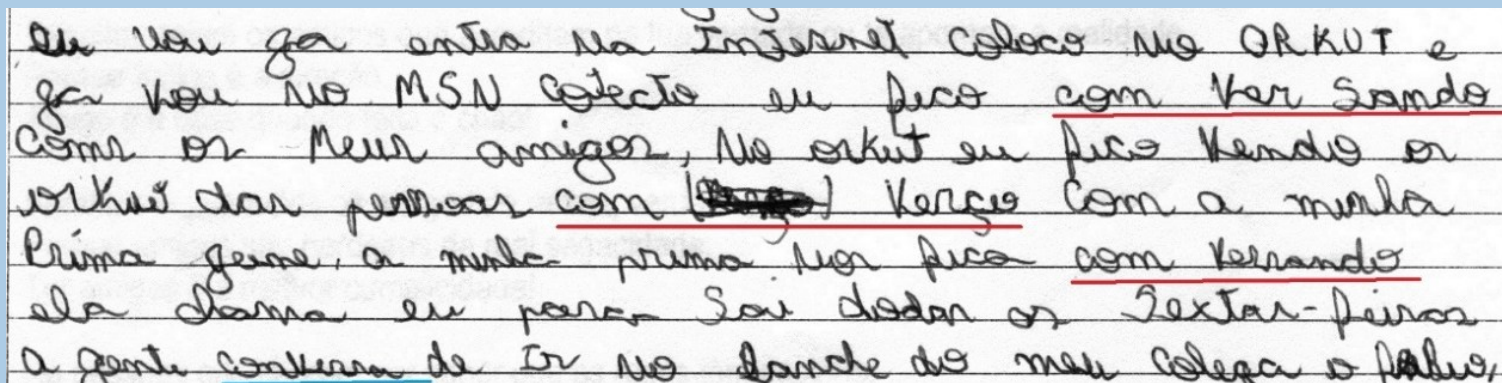 eu vou ga entra na Internet coloco no ORKUT e
ga vou no MSN eu fico com ver sando
com os Meus amigos, No orkut eu fico vendo os
orkut das pessoas com verço com a minha
Prima a minha prima nos fica com versando
ela chama eu para Sai dodas as Sextas-feiras
a gente conversa de Ir no Lanche do meu colega o